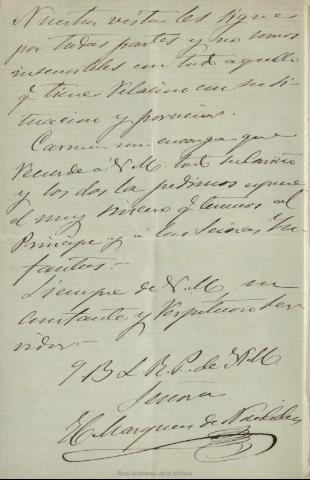 Nuestra vista les sigue
por todas partes y no somos
insensibles con todo aquello
q. tiene relacion con su si-
tuacion y porvenir.
Carmen me encarga que
recuerde á V.M. todo su cariño
y los dos la pedimos
el muy sincero q. tenemos al
Principe y á las Señoras In-
fantas.-
Siempre de V.M. su
constante y respetuoso ser-
vidor-
q B L R P. de V.M.
Señora
El Marques de
Real Academia de la Historia